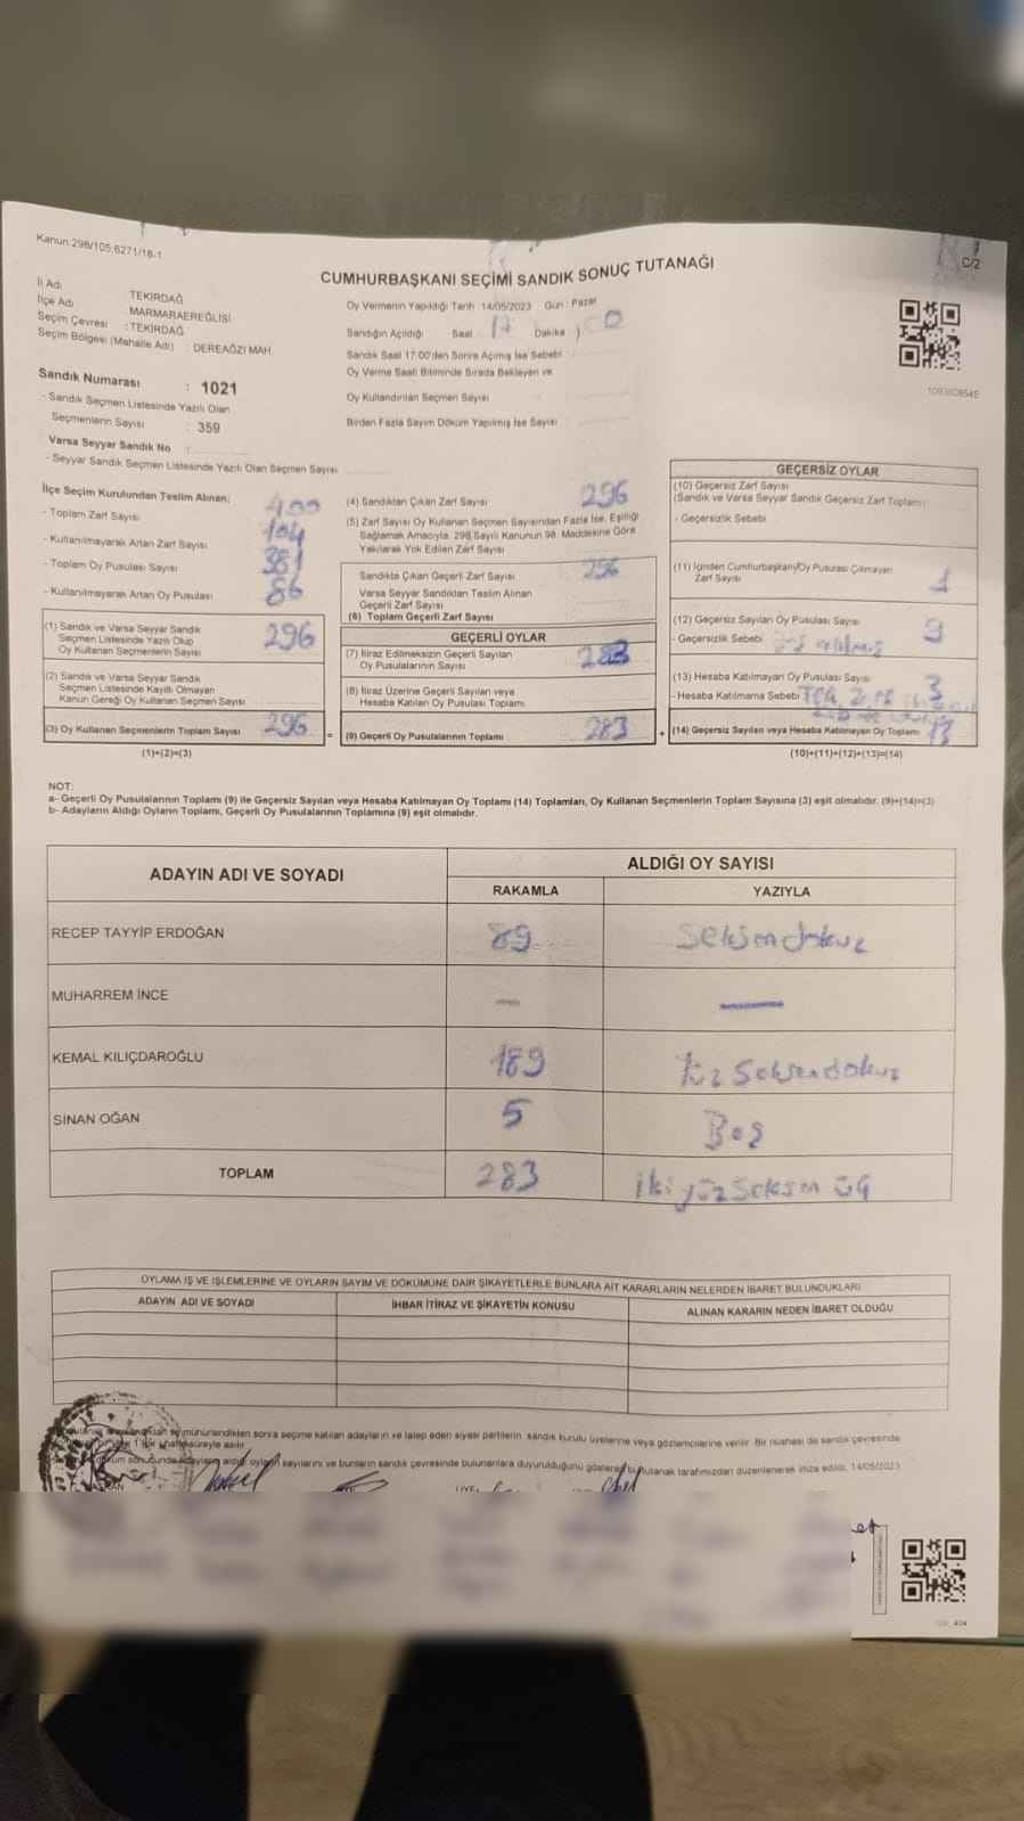 Kanun:298/105;6271/18-1
C/2
CUMHURBAŞKANI SEÇİMİ SANDIK SONUÇ TUTANAĞI
İl Adı TEKİRDAĞ
İlçe Adı MARMARAEREĞLİSİ
Seçim Çevresi : TEKİRDAĞ
Seçim Bölgesi (Mahalle Adı) : DEREAĞZI MAH.
Sandık Numarası : 1021
- Sandık Seçmen Listesinde Yazılı Olan
Seçmenlerin Sayısı : 359
Varsa Seyyar Sandık No :
- Seyyar Sandık Seçmen Listesinde Yazılı Olan Seçmen Sayısı
Oy Vermenin Yapıldığı Tarih 14/05/2023 Gün : Pazar
Sandığın Açıldığı Saat 17 Dakika
Sandık Saat 17:00'den Sonra Açılmış İse Sebebi
Oy Verme Saati Bitiminde Sırada Bekleyen ve
Oy Kullandırılan Seçmen Sayısı
Birden Fazla Sayım Döküm Yapılmış İse Sayısı
İlçe Seçim Kurulundan Teslim Alınan;
- Toplam Zarf Sayısı 400
- Kullanılmayarak Artan Zarf Sayısı 104
- Toplam Oy Pusulası Sayısı 381
- Kullanılmayarak Artan Oy Pusulası 86
(1) Sandık ve Varsa Seyyar Sandık
Seçmen Listesinde Yazılı Olup
Oy Kullanan Seçmenlerin Sayısı 296
(2) Sandık ve Varsa Seyyar Sandık
Seçmen Listesinde Kayıtlı Olmayan
Kanun Gereği Oy Kullanan Seçmen Sayısı
(3) Oy Kullanan Seçmenlerin Toplam Sayısı 296 =
(1)+(2)=(3)
(4) Sandıktan Çıkan Zarf Sayısı 296
(5) Zarf Sayısı Oy Kullanan Seçmen Sayısından Fazla İse, Eşitliği
Sağlamak Amacıyla, 298 Sayılı Kanunun 98. Maddesine Göre
Yakılarak Yok Edilen Zarf Sayısı
Sandıkta Çıkan Geçerli Zarf Sayısı 296
Varsa Seyyar Sandıktan Teslim Alınan
Geçerli Zarf Sayısı
(6) Toplam Geçerli Zarf Sayısı
GEÇERLİ OYLAR
(7) İtiraz Edilmeksizin Geçerli Sayılan
Oy Pusulalarının Sayısı 283
(8) İtiraz Üzerine Geçerli Sayılan veya
Hesaba Katılan Oy Pusulası Toplamı
(9) Geçerli Oy Pusulalarının Toplamı 283 +
GEÇERSİZ OYLAR
(10) Geçersiz Zarf Sayısı
(Sandık ve Varsa Seyyar Sandık Geçersiz Zarf Toplamı)
- Geçersizlik Sebebi
(11) İçinden Cumhurbaşkanı Oy Pusulası Çıkmayan
Zarf Sayısı 1
(12) Geçersiz Sayılan Oy Pusulası Sayısı 9
- Geçersizlik Sebebi
(13) Hesaba Katılmayan Oy Pusulası Sayısı 3
- Hesaba Katılmama Sebebi
(14) Geçersiz Sayılan veya Hesaba Katılmayan Oy Toplamı 13
(10)+(11)+(12)+(13)=(14)
NOT:
a- Geçerli Oy Pusulalarının Toplamı (9) ile Geçersiz Sayılan veya Hesaba Katılmayan Oy Toplamı (14) Toplamları, Oy Kullanan Seçmenlerin Toplam Sayısına (3) eşit olmalıdır. (9)+(14)=(3)
b- Adayların Aldığı Oyların Toplamı, Geçerli Oy Pusulalarının Toplamına (9) eşit olmalıdır.
ADAYIN ADI VE SOYADI
ALDIĞI OY SAYISI
RAKAMLA YAZIYLA
RECEP TAYYİP ERDOĞAN 89 Seksen dokuz
MUHARREM İNCE — —
KEMAL KILIÇDAROĞLU 189 Yüz Seksen dokuz
SİNAN OĞAN 5 Beş
TOPLAM 283 İki yüz Seksen üç
OYLAMA İŞ VE İŞLEMLERİNE VE OYLARIN SAYIM VE DÖKÜMÜNE DAİR ŞİKAYETLERLE BUNLARA AİT KARARLARIN NELERDEN İBARET BULUNDUKLARI
ADAYIN ADI VE SOYADI İHBAR İTİRAZ VE ŞİKAYETİN KONUSU ALINAN KARARIN NEDEN İBARET OLDUĞU
mühürlendikten sonra seçime katılan adayların ve talep eden siyasi partilerin sandık kurulu üyelerine veya gözlemcilerine verilir. Bir nüshası da sandık çevresinde
süreyle asılır.
sonucunda adayların aldığı oyların sayılarını ve bunların sandık çevresinde bulunanlara duyurulduğunu gösteren bu tutanak tarafımızdan düzenlenerek imza edildi. 14/05/2023